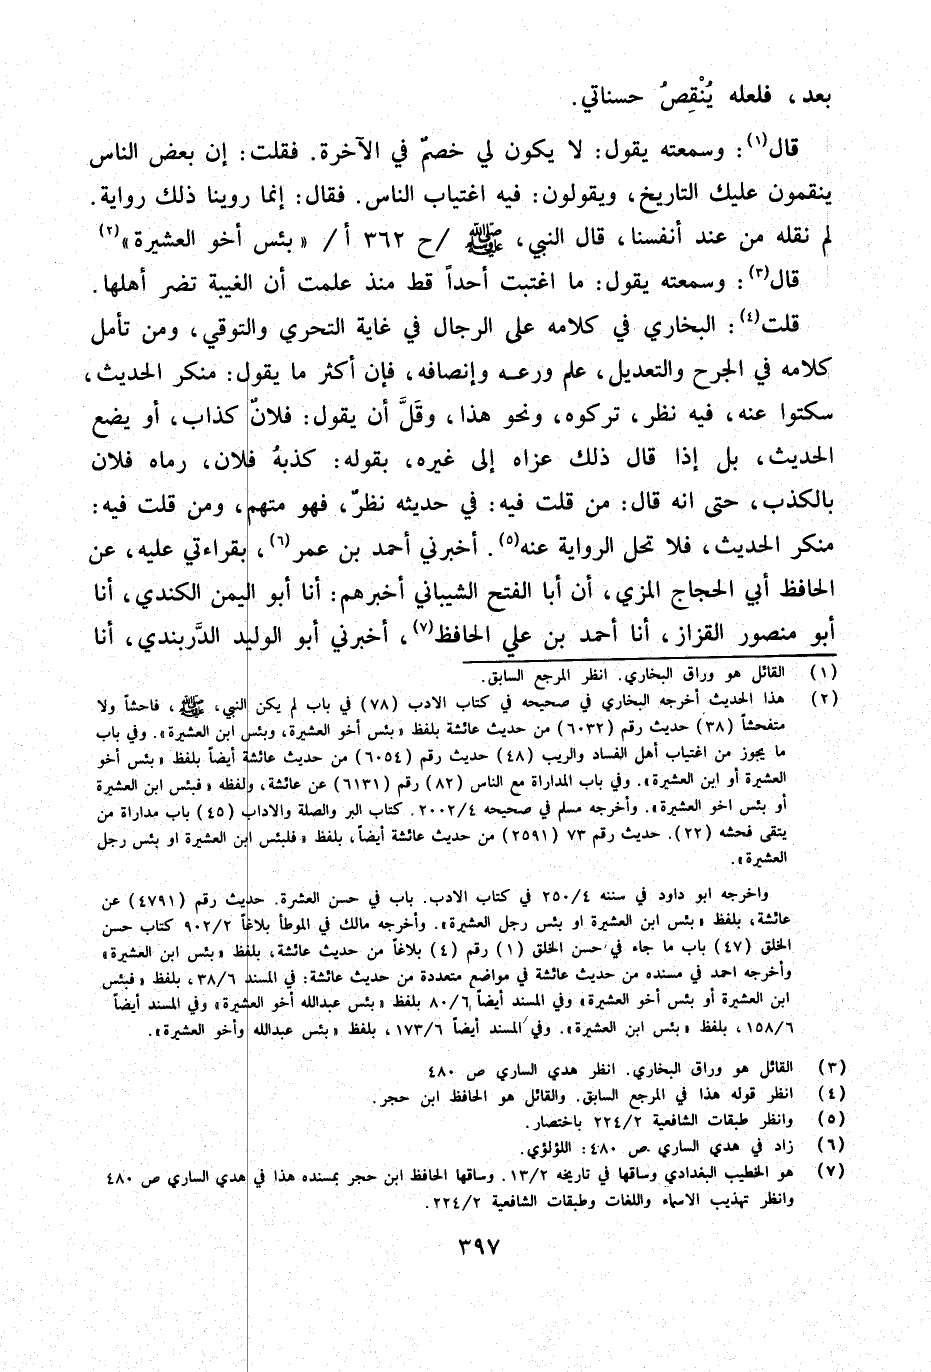 بعد، فلعله يُنْقِصُ حسناتي.
قال(١): وسمعته يقول: لا يكون لي خصمٌ في الآخرة. فقلت: إن بعض الناس
ينقمون عليك التاريخ، ويقولون: فيه اغتياب الناس. فقال: إنما روينا ذلك رواية.
لم نقله من عند أنفسنا، قال النبي، ﷺ /ح ٣٦٢ أ/ «بئس أخو العشيرة»(٢)
قال(٣): وسمعته يقول: ما اغتبت أحداً قط منذ علمت أن الغيبة تضر أهلها.
قلت(٤): البخاري في كلامه على الرجال في غاية التحري والتوقي، ومن تأمل
كلامه في الجرح والتعديل، علم ورعه وإنصافه، فإن أكثر ما يقول: منكر الحديث،
سكتوا عنه، فيه نظر، تركوه، ونحو هذا، وقَلَّ أن يقول: فلانٌ كذاب، أو يضع
الحديث، بل إذا قال ذلك عزاه إلى غيره، بقوله: كذبهُ فلان، رماه فلان
بالكذب، حتى انه قال: من قلت فيه: في حديثه نظرٌ، فهو متهم، ومن قلت فيه:
منكر الحديث، فلا تحل الرواية عنه(٥). أخبرني أحمد بن عمر(٦)، بقراءتي عليه، عن
الحافظ أبي الحجاج المزي، أن أبا الفتح الشيباني أخبرهم: أنا أبو اليمن الكندي، أنا
أبو منصور القزاز، أنا أحمد بن علي الحافظ(٧)، أخبرني أبو الوليد الدَّربندي، أنا
(١) القائل هو وراق البخاري. انظر المرجع السابق.
(٢) هذا الحديث أخرجه البخاري في صحيحه في كتاب الادب (٧٨) في باب لم يكن النبي، ﷺ، فاحشاً ولا
متفحشاً (٣٨) حديث رقم (٦٠٣٢) من حديث عائشة بلفظ «بئس أخو العشيرة، وبئس ابن العشيرة». وفي باب
ما يجوز من اغتياب أهل الفساد والريب (٤٨) حديث رقم (٦٠٥٤) من حديث عائشة أيضاً بلفظ «بئس أخو
العشيرة أو ابن العشيرة». وفي باب المداراة مع الناس (٨٢) رقم (٦١٣١) عن عائشة، ولفظه «فبئس ابن العشيرة
أو بئس اخو العشيرة». وأخرجه مسلم في صحيحه ٢٠٠٢/٤. كتاب البر والصلة والاداب (٤٥) باب مداراة من
يتقى فحشه (٢٢). حديث رقم ٧٣ (٢٥٩١) من حديث عائشة أيضاً، بلفظ «فلبئس ابن العشيرة او بئس رجل
العشيرة».
واخرجه ابو داود في سننه ٢٥٠/٤ في كتاب الادب. باب في حسن العشرة. حديث رقم (٤٧٩١) عن
عائشة، بلفظ «بئس ابن العشيرة او بئس رجل العشيرة». وأخرجه مالك في الموطأ بلاغاً ٩٠٢/٢ كتاب حسن
الخلق (٤٧) باب ما جاء في حسن الخلق (١) رقم (٤) بلاغاً من حديث عائشة، بلفظ «بئس ابن العشيرة»
وأخرجه احمد في مسنده من حديث عائشة في مواضع متعددة من حديث عائشة: في المسند ٣٨/٦، بلفظ «فبئس
ابن العشيرة أو بئس أخو العشيرة» وفي المسند أيضاً ٨٠/٦ بلفظ «بئس عبدالله أخو العشيرة» وفي المسند أيضاً
١٥٨/٦، بلفظ «بئس ابن العشيرة». وفي المسند أيضاً ١٧٣/٦، بلفظ «بئس عبدالله وأخو العشيرة».
(٣) القائل هو وراق البخاري. انظر هدي الساري ص ٤٨٠
(٤) انظر قوله هذا في المرجع السابق. والقائل هو الحافظ ابن حجر.
(٥) وانظر طبقات الشافعية ٢٢٤/٢ باختصار.
(٦) زاد في هدي الساري ص ٤٨٠: اللؤلؤي.
(٧) هو الخطيب البغدادي وساقها في تاريخه ١٣/٢. وساقها الحافظ ابن حجر بمسنده هذا في هدي الساري ص ٤٨٠
وانظر تهذيب الاسماء واللغات وطبقات الشافعية ٢٢٤/٢.
٣٩٧